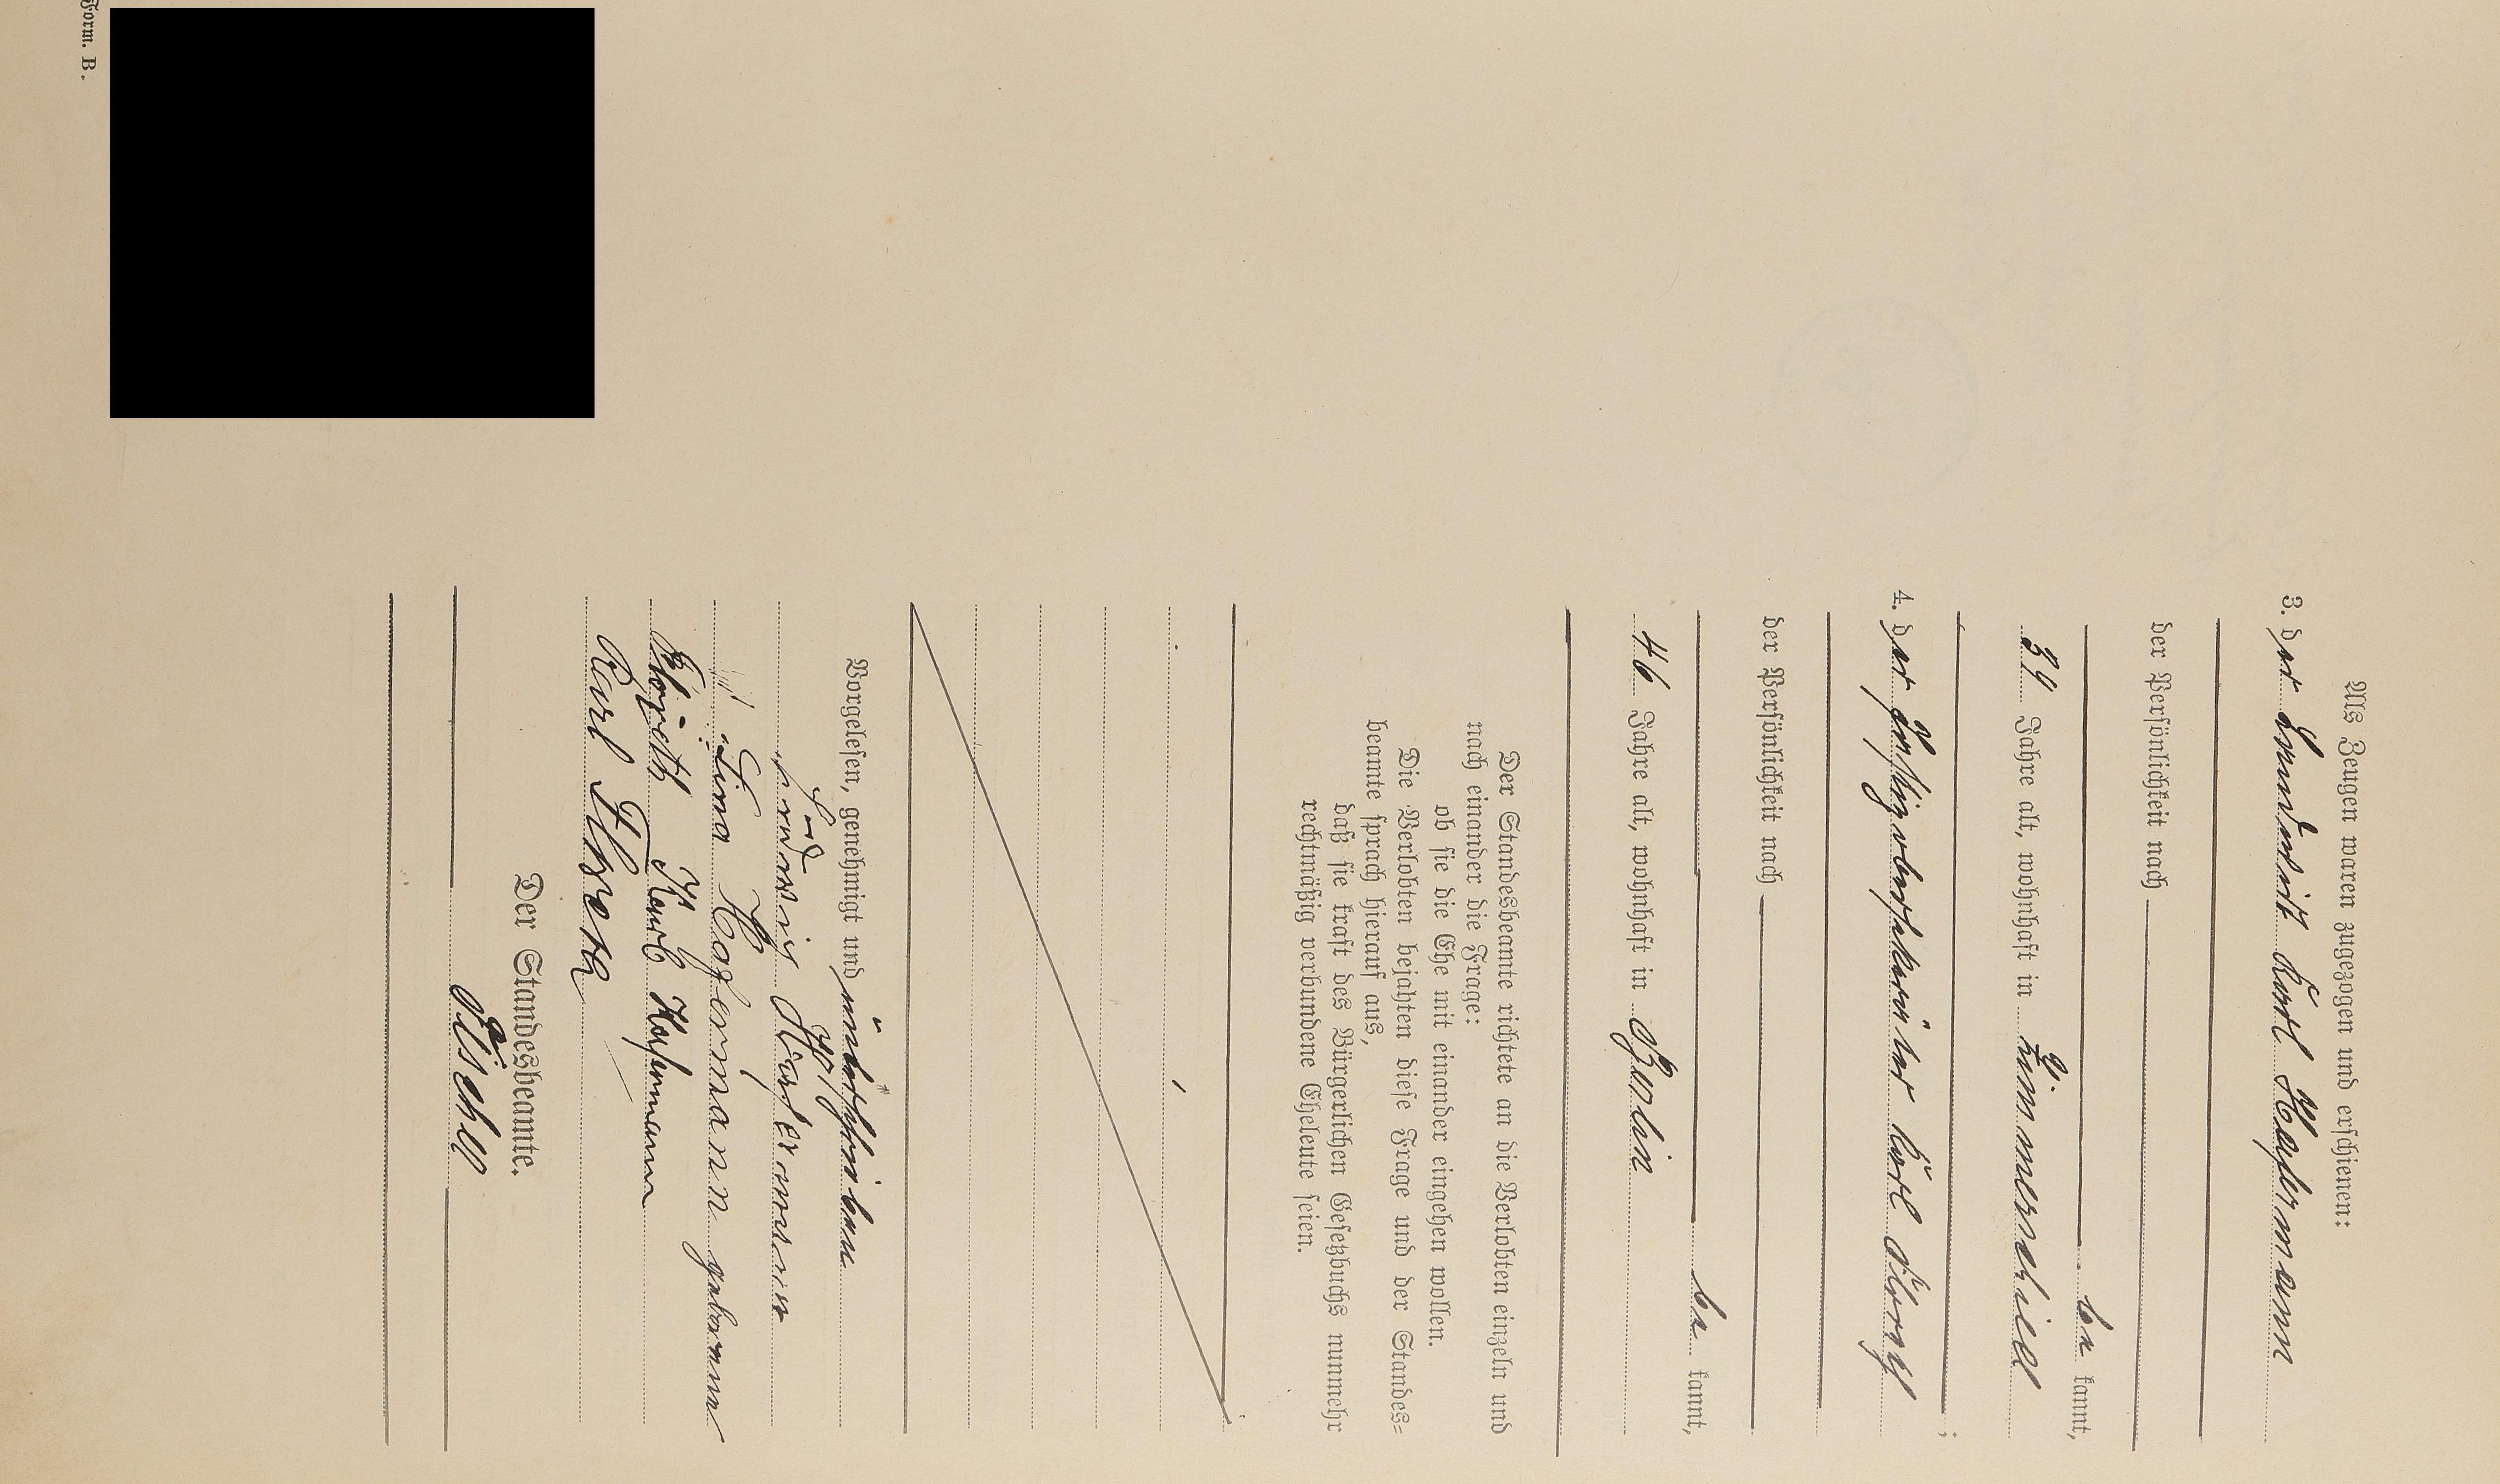 Als Zeugen waren zugezogen und erschienen:
3. der Landwirt Karl Hagemann
der Persönlichkeit nach
be kannt,
39 Jahre alt, wohnhaft in Zimmerschied
4. der Karl
;
der Persönlichkeit nach
be kannt,
46 Jahre alt, wohnhaft in
Der Standesbeamte richtete an die Verlobten einzeln und
nach einander die Frage:
ob sie die Ehe mit einander eingehen wollen.
Die Verlobten bejahten diese Frage und der Standes=
beamte sprach hierauf aus,
daß sie kraft des Bürgerlichen Gesetzbuchs nunmehr
rechtmäßig verbundene Eheleute seien.
Vorgelesen, genehmigt und unterschrieben
Ludwig
Lina geborene
Karl
Karl
Der Standesbeamte.
Form. B.